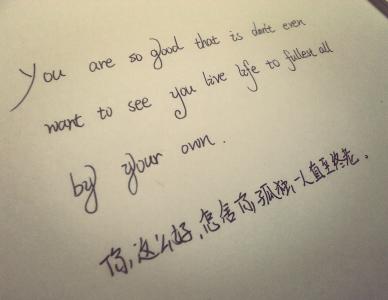 You are so good that is don't even
want to see you live life to fullest all
by your own.
你,这么好,怎舍你,孤独,一人直至终老。